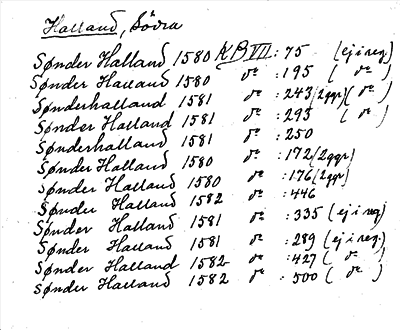 Halland, Södra
Sønder Halland 1580 KB VII : 75 (ej i reg.)
Sønder Halland 1580 dº : 195 ( dº )
Sønderhalland 1581 dº : 243 (2ggr) ( dº )
Sønder Halland 1581 dº : 293 ( dº )
Sønderhalland 1581 dº : 250
Sønder Halland 1580 dº : 172 (2ggr)
Sønder Halland 1580 dº : 176 (2ggr)
Sønder Halland 1582 dº : 446
Sønder Halland 1581 dº : 335 (ej i reg)
Sønder Halland 1581 dº : 289 (ej i reg.)
Sønder Halland 1582 dº : 427 ( dº )
Sønder Halland 1582 dº : 500 ( dº )